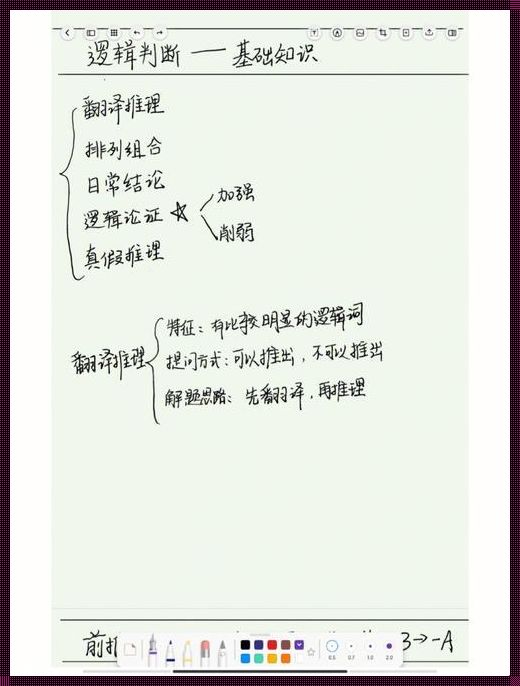 逻辑判断 — 基础知识
翻译推理
排列组合
日常结论
逻辑论证 ☆
加强
削弱
真假推理
翻译推理
特征：有比较明显的逻辑词
提问方式：可以推出，不可以推出
解题思路：先翻译，再推理
0.5 0.7 1.0 2.0
前 →-A